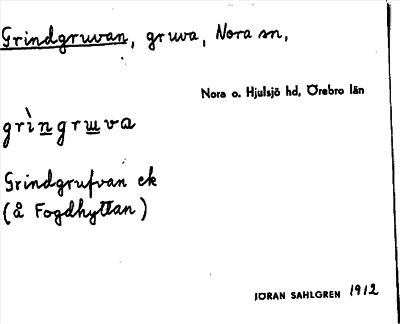 Grindgruvan, gruva, Nora sn,
Nora o. Hjulsjö hd, Örebro län
grìngruva
Grindgrufvan ek
(å Fogdhyttan)
JÖRAN SAHLGREN 1912